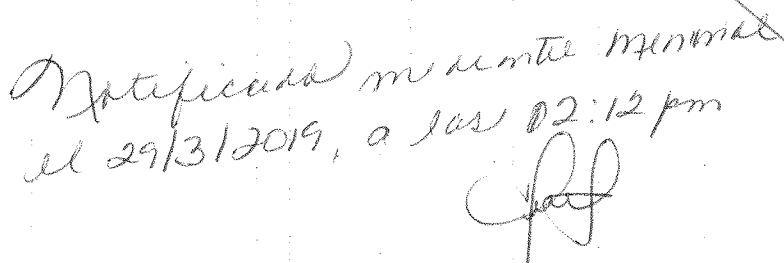 Notificado mediante memorial
el 29/3/2019, a las 02:12 pm